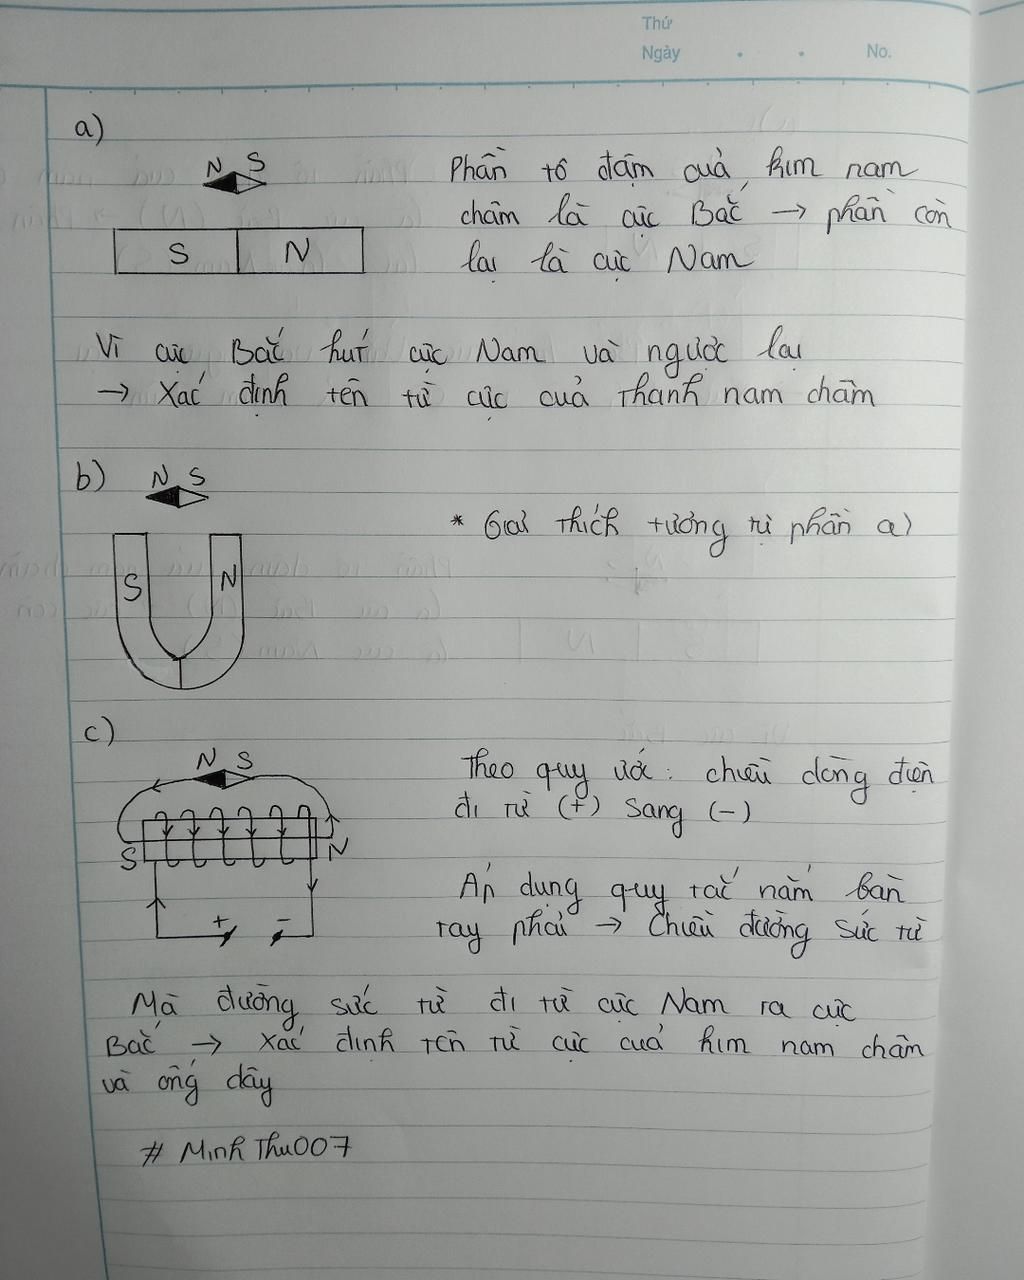 Thứ
Ngày . . No.
a)
N S
Phần tô đậm của kim nam
châm là cực Bắc → phần còn
S N
lại là cực Nam
Vì cực Bắc hút cực Nam và ngược lại
→ Xác định tên từ cực của thanh nam châm
b) N S
* Giải thích tương tự phần a)
S N
c)
N S
Theo quy ước : chiều dòng điện
đi từ (+) sang (-)
S N
Áp dụng quy tắc nắm bàn
+ -
tay phải → Chiều đường sức từ
Mà đường sức từ đi từ cực Nam ra cực
Bắc → xác định tên từ cực của kim nam châm
và ống dây
# MinhThu007